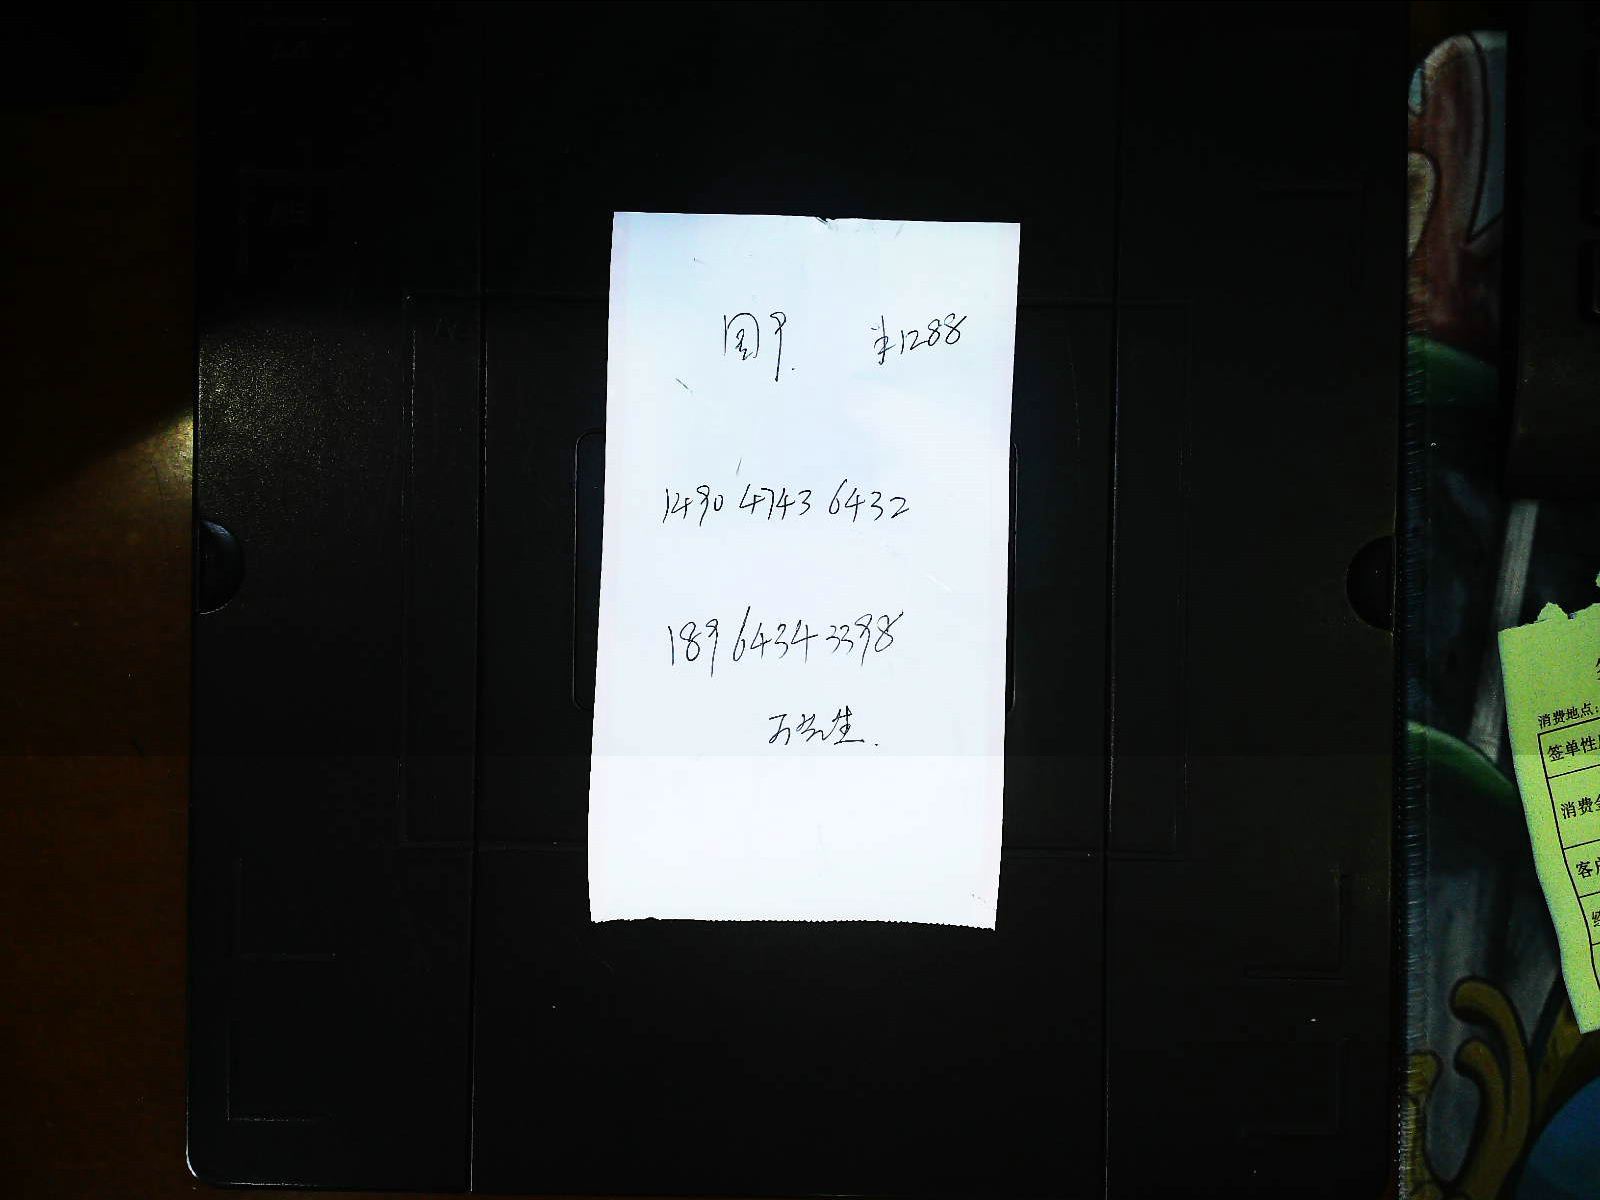 ¥1288
1490 4743 6432
189 6434 3398
万先生.
消费地点:
签单性
消费
客户